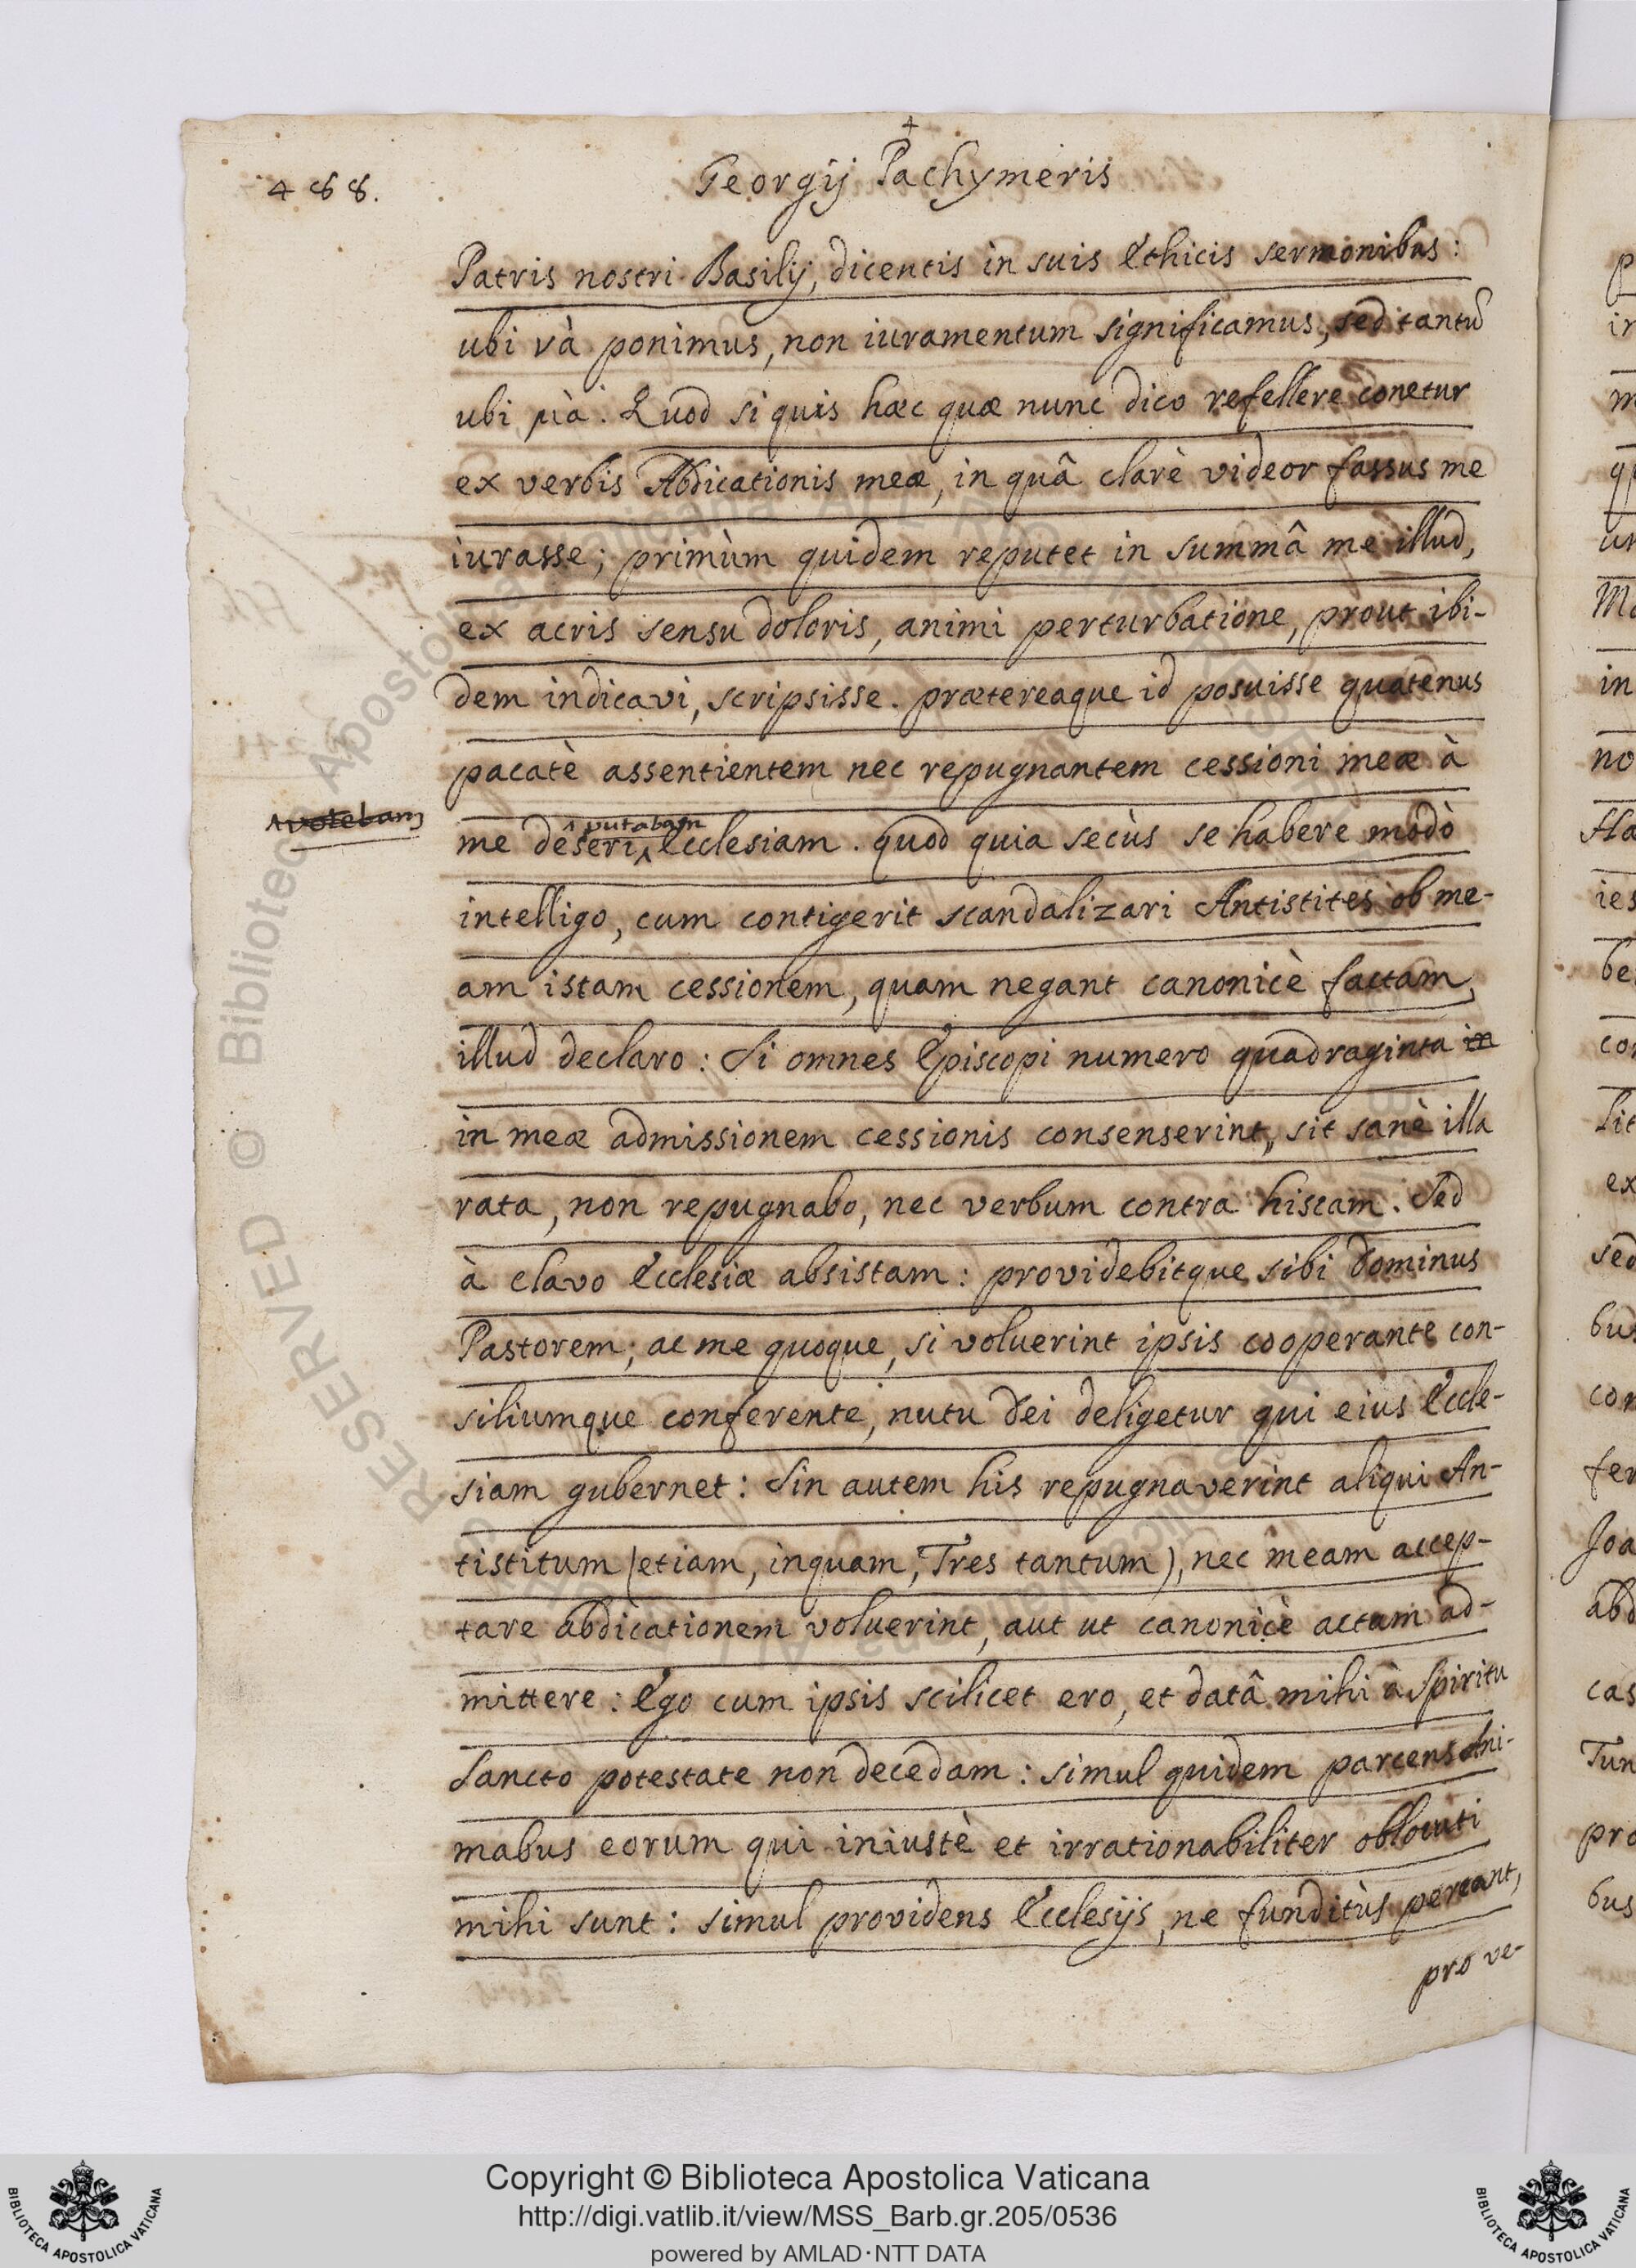 488.
Georgij Pachymeris
Patris nostri Basilij, dicentis in suis Ethicis sermonibus:
ubi và ponimus, non iuramentum significamus, sed tantū
ubi μὰ. Quod si quis hæc quæ nunc dico refellere conetur
ex verbis Abdicationis meæ, in quâ clarè videor fassus me
iurasse; primùm quidem reputet in summâ me illud,
ex acris sensu doloris, animi perturbatione, prout ibi-
dem indicavi, scripsisse. prætereaque id posuisse quatenus
pacatè assentientem nec repugnantem cessioni meæ à
volebam
putabam
me deseri Ecclesiam. quod quia secùs se habere modò
intelligo, cum contigerit scandalizari Antistites ob me-
am istam cessionem, quam negant canonicè factam,
illud declaro: Si omnes Episcopi numero quadraginta in
in meæ admissionem cessionis consenserint, sit sanè illa
rata, non repugnabo, nec verbum contra hiscam. Sed
à clavo Ecclesiæ absistam: providebitque sibi Dominus
Pastorem; ac me quoque, si voluerint ipsis cooperante con-
siliumque conferente, nutu Dei deligetur qui eius Eccle-
siam gubernet: Sin autem his repugnaverint aliqui An-
tistitum (etiam, inquam, Tres tantum), nec meam accep-
tare abdicationem voluerint, aut ut canonicè actam ad-
mittere: Ego cum ipsis scilicet ero, et datâ mihi à Spiritu
Sancto potestate non decedam: simul quidem parcens Ani-
mabus eorum qui iniustè et irrationabiliter oblocuti
mihi sunt: simul providens Ecclesijs, ne funditùs pereant,
pro ve-
Copyright © Biblioteca Apostolica Vaticana
http://digi.vatlib.it/view/MSS_Barb.gr.205/0536
powered by AMLAD·NTT DATA
BIBLIOTECA APOSTOLICA VATICANA
BIBLIOTECA APOSTOLICA VATICANA